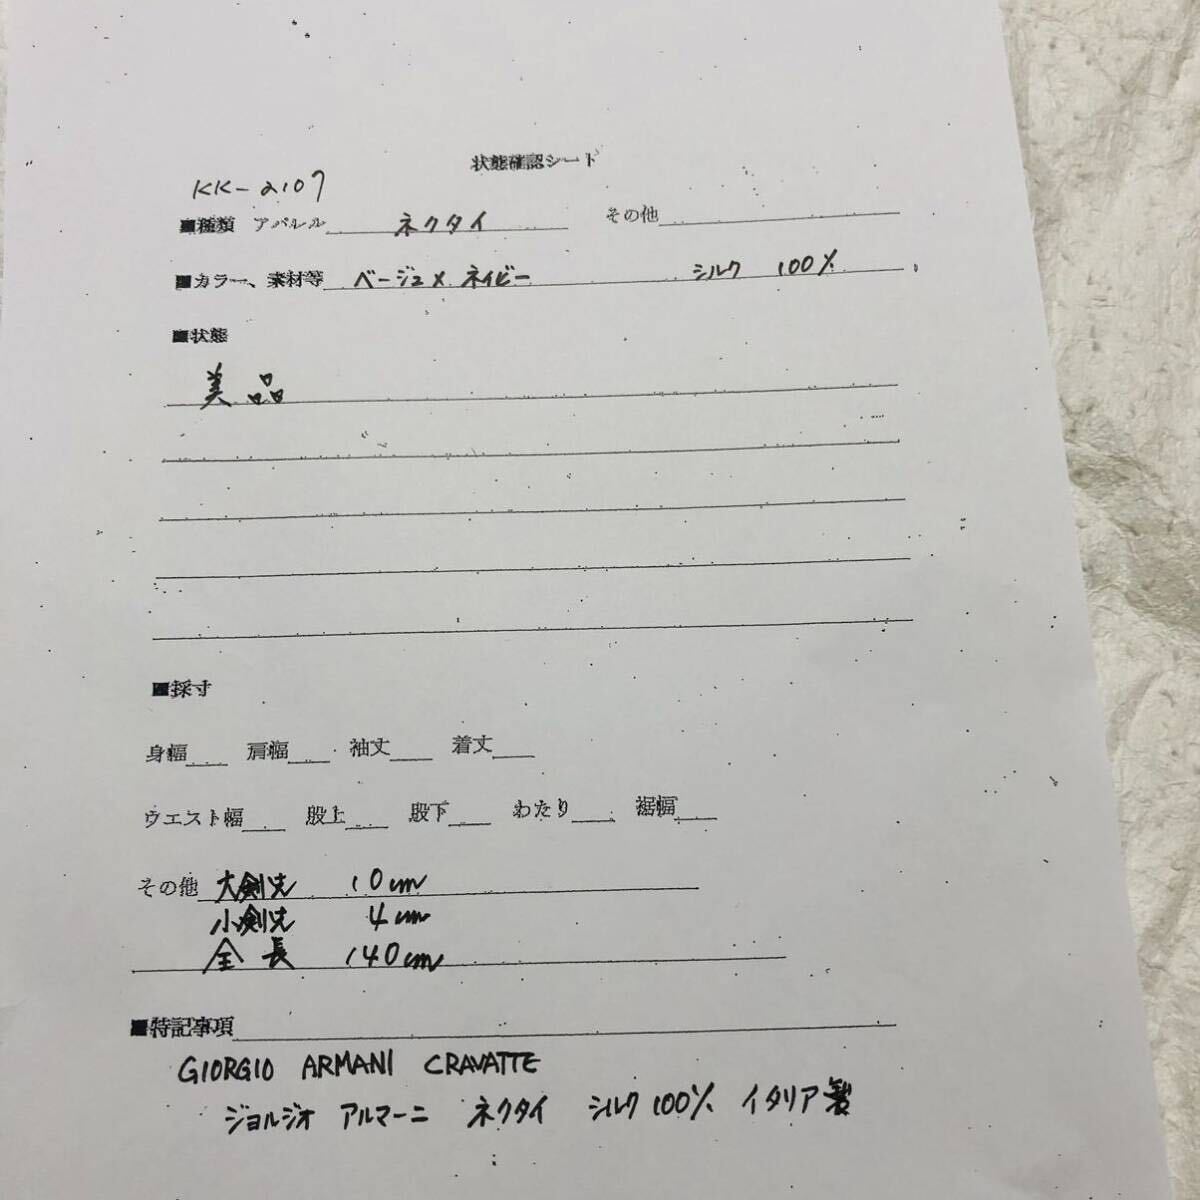 状態確認シート
KK-2107
■種類 アパレル ネクタイ その他
■カラー、素材等 ベージュ× ネイビー シルク 100%
■状態
美品
■採寸
身幅 肩幅 袖丈 着丈
ウエスト幅 股上 股下 わたり 裾幅
その他 大剣先 10cm
小剣先 4cm
全長 140cm
■特記事項
GIORGIO ARMANI CRAVATTE
ジョルジオ アルマーニ ネクタイ シルク100% イタリア製